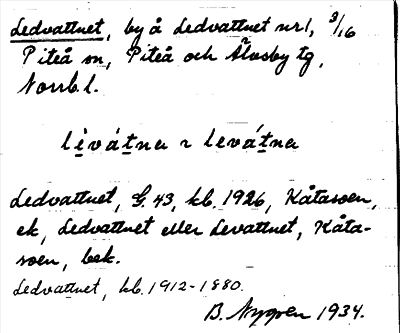 Ledvattnet, by å Ledvattnet nr 1, 3/16
Piteå sn, Piteå och Älvsby tg,
Norrb. l.
lèvátna ~ levátna
Ledvattnet, G. 43, kb. 1926, Kåtaseen,
ek, Ledvattnet eller Levattnet, Kåta-
seen, bek.
Ledvattnet, kb. 1912-1880.
B. Nygren 1934.